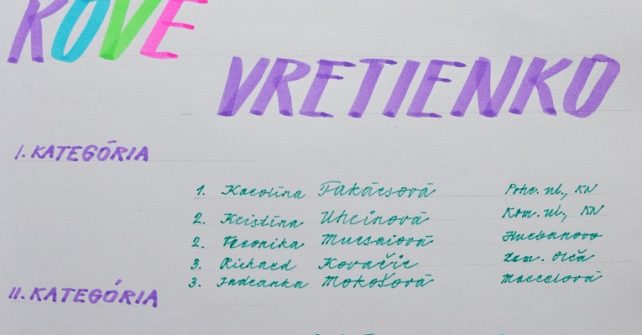 KOVÉ
VRETIENKO
I. KATEGÓRIA
1. Karolína Takácsová Pohr. ul., KN
2. Kristína Uhrinová Kom. ul., KN
2. Veronika Mucsaiová Hurbanovo
3. Richard Kovačic Zem. Olča
3. Jadranka Mokošová Marcelová
II. KATEGÓRIA